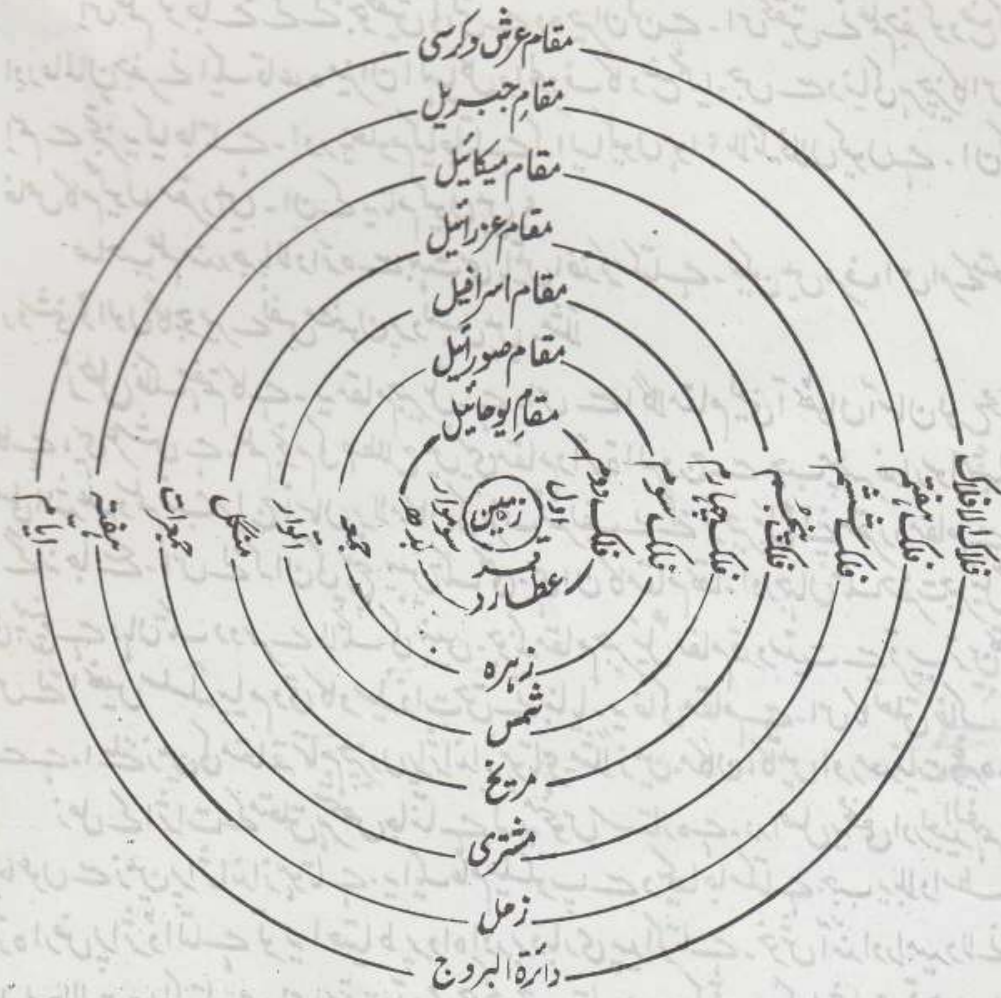 مقام عرش و کرسی
مقام جبریل
مقام میکائیل
مقام عزرائیل
مقام اسرافیل
مقام صورائیل
مقام لوحائیل
زمین
قمر
عطارد
زہرہ
شمس
مریخ
مشتری
زحل
دائرۃ البروج
اول
فلک دوم
فلک سوم
فلک چہارم
فلک پنجم
فلک ششم
فلک ہفتم
فلک الافلاک
سوموار
بدھ
جمعہ
اتوار
منگل
جمعرات
ہفتہ
ایام